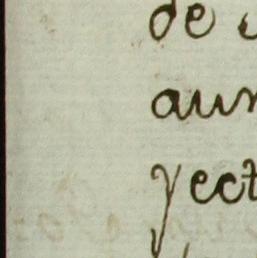 de
aun
yect